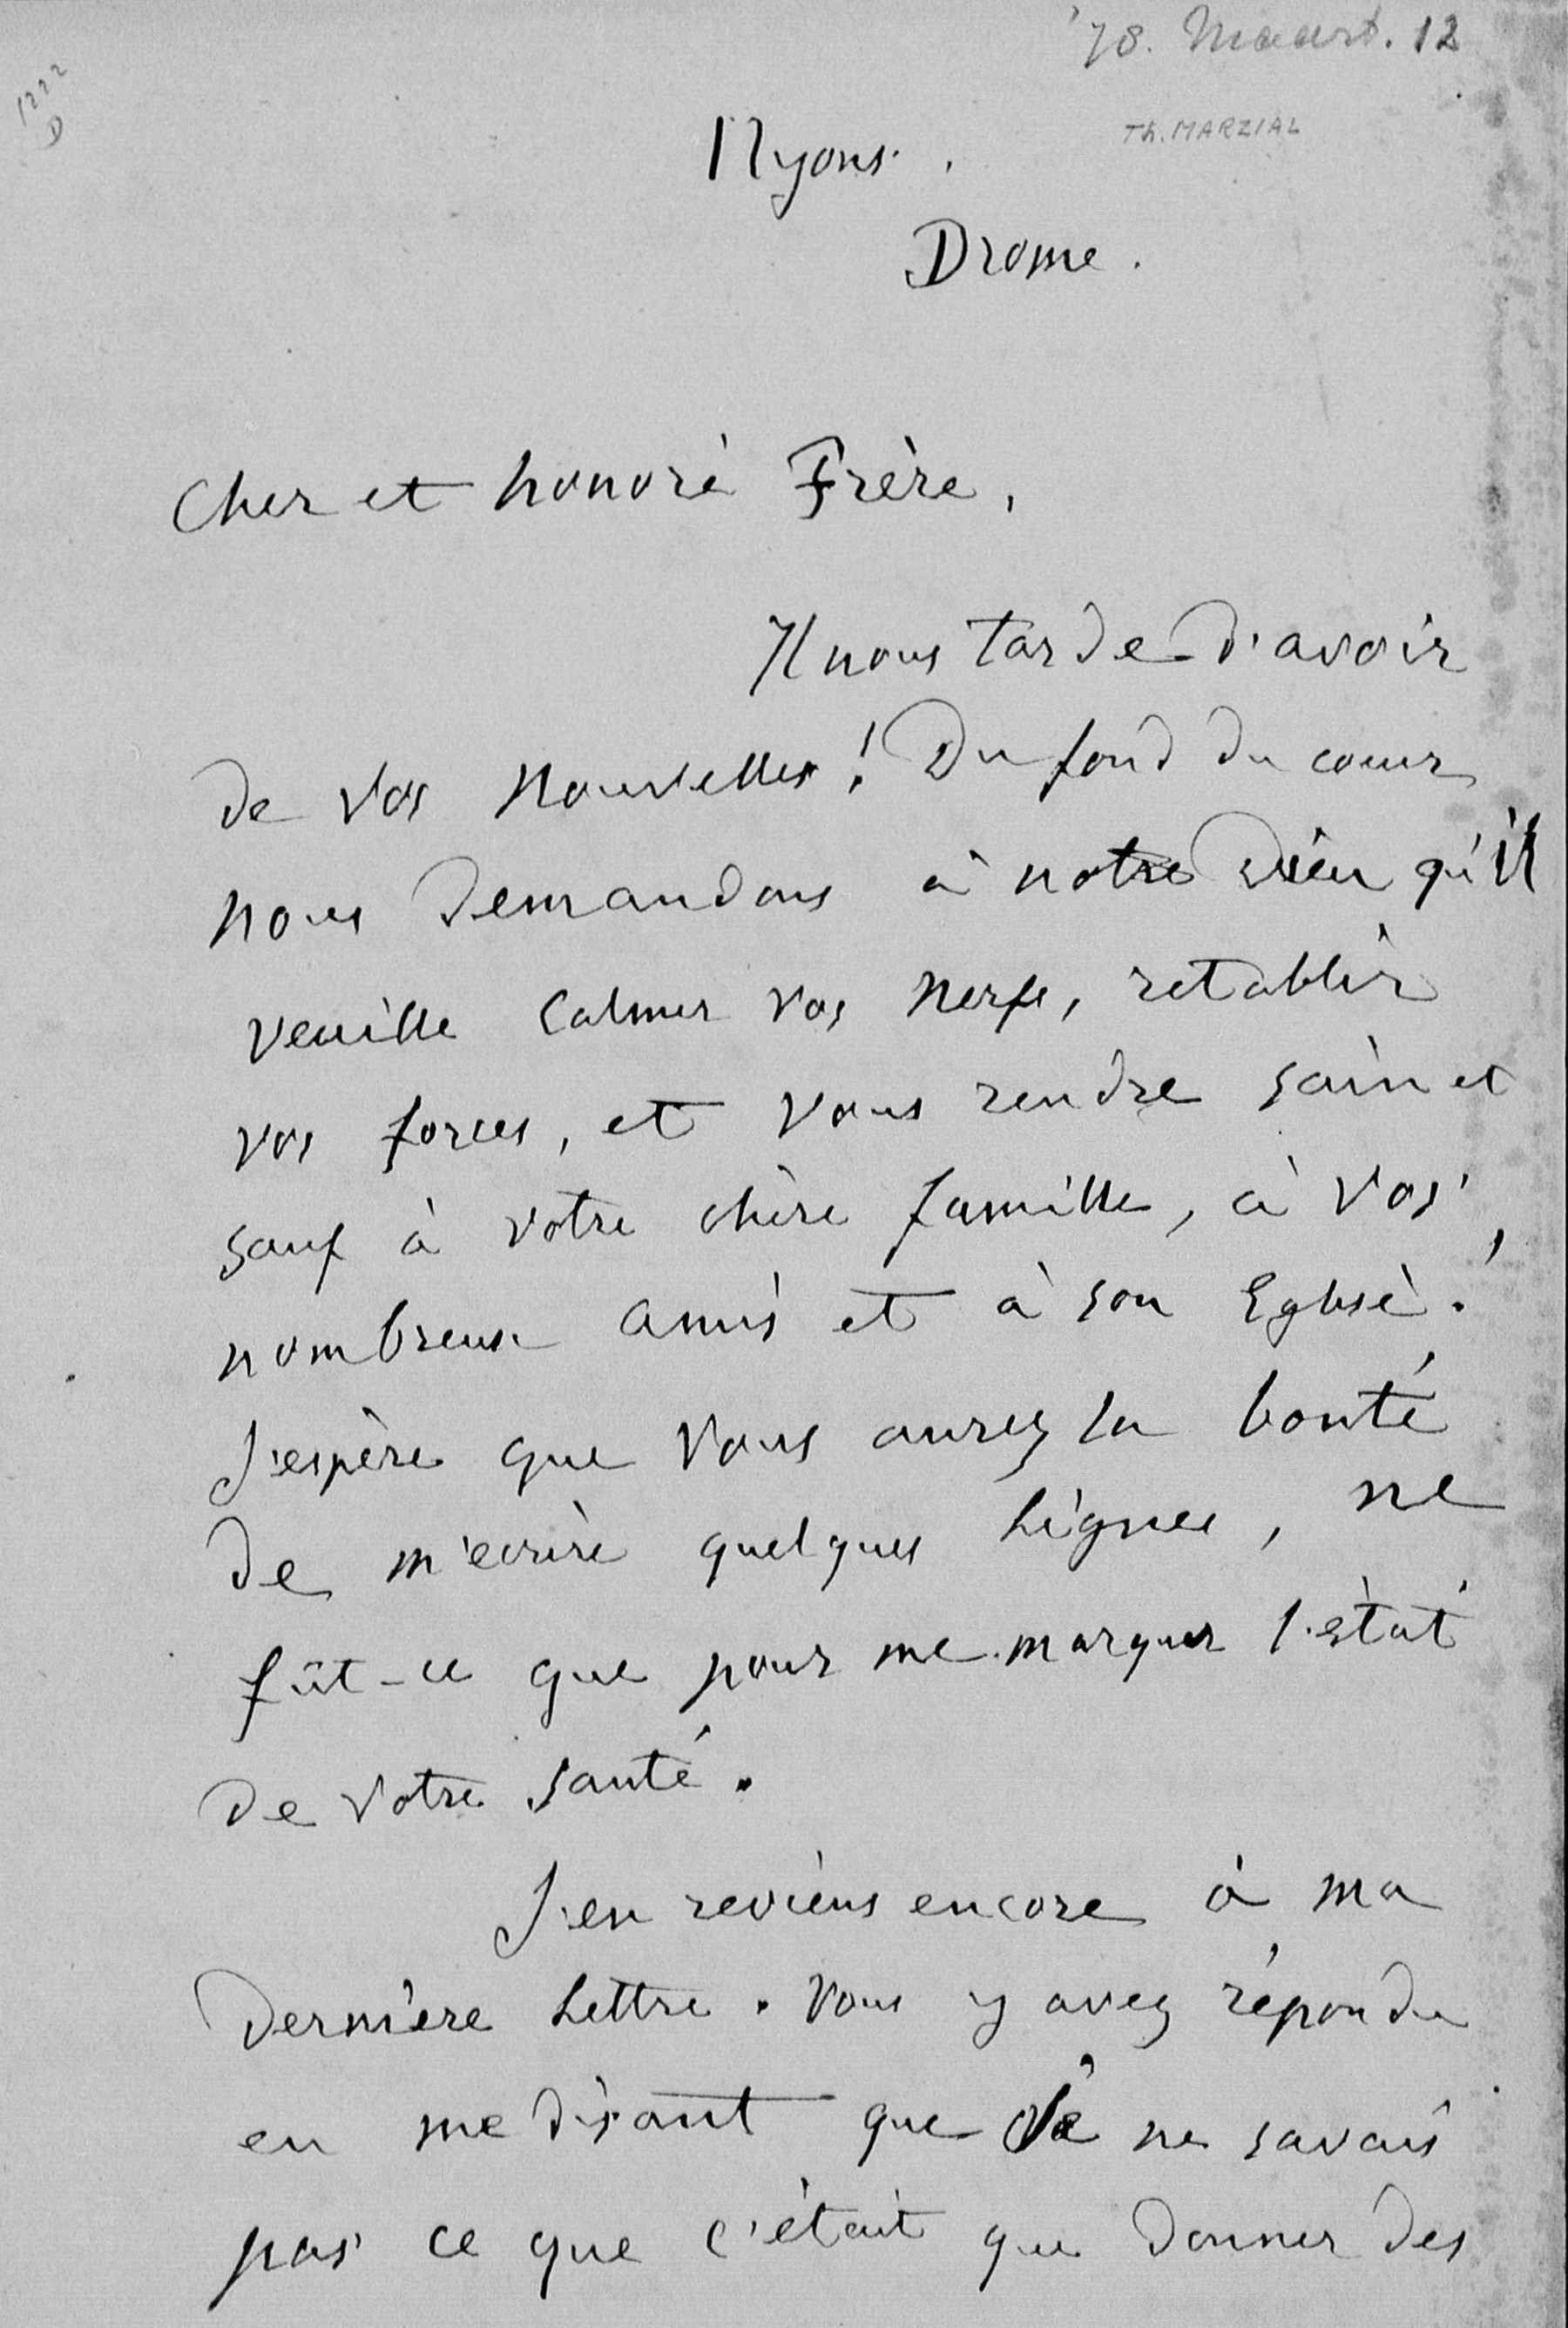 '78. Maart. 12
1222
D
Th. MARZIAL
Nyons.
Drome.
Cher et honoré Frère,
Il nous tarde d'avoir
de vos nouvelles! Du fond du coeur
nous demandons à notre Dieu qu'il
veuille calmer vos nerfs, retablir
vos forces, et vous rendre sain et
sauf à votre chère famille, à vos
nombreux amis et à son Eglise!
J'espère que vous aurez la bonté
de m'ecrire quelques lignes, ne
fût-ce que pour me marquer l'état
de votre santé.
J'en reviens encore à ma
dernière lettre. Vous y avez répondu
en me disant que je ne savais
pas ce que c'était que donner des